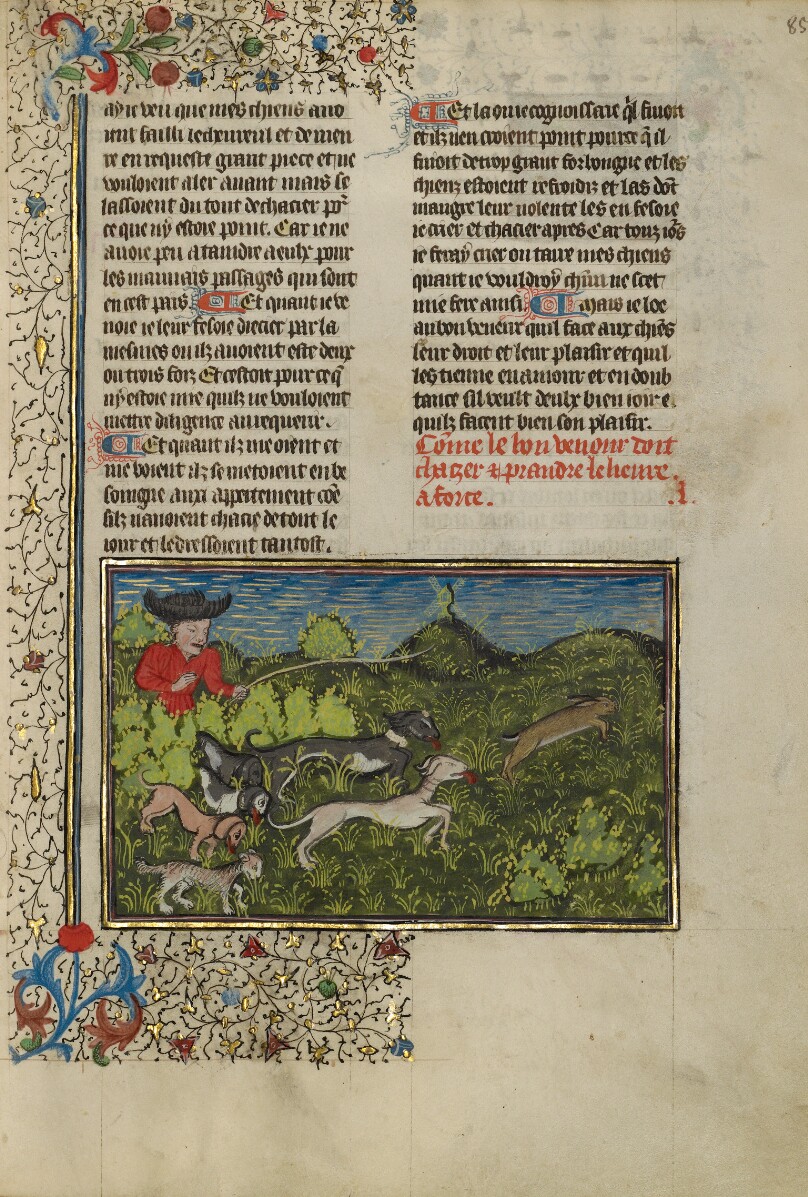 85
ay ie veu que mes chiens auo
ient failli le cheureul et demeu
re en requeste grant piece et ne
vouloient aler auant mais se
lassoient du tout de chacier por
ce que ny estoie point. Car ie ne
auoie peu ataindre a eulx pour
les mauuais passages qui sont
en cest pais Et quant ie ve
noie ie leur fesoie drecier par la
mesmes ou ilz auoient este deux
ou trois fois Et cestoit pour ce q̄
ny estoie mie quilz ne vouloient
mettre diligence au requerir.
Et quant ilz me oient et
me voient ilz se metoient en be
soingne aussi appertement cōe
silz nauoient chacie de tout le
iour et le dressoient tantost.
Et la ou ie cognoissoie ql̄ fuioit
et ilz nen crioient point pource q̄ il
fuioit de trop grant forlongne et les
chiens estoient refroidiz et las dōt
maugre leur volente les en fesoie
ie crier et chacier apres Car touz iōs
ie feray crier ou taire mes chiens
quant ie vouldroy chūn ne scet
mie fere ainsi Mais ie loe
au bon veneur quil face aux chiēs
leur droit et leur plaisir et quil
les tienne en amour et en doub
tance sil veult deulx bien ioir e
quilz facent bien son plaisir.
Cōme le bon venour doit
chacer & prandre le lieure.
a force.